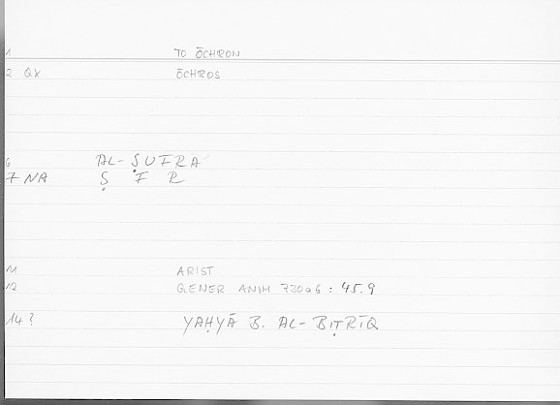 1 TO ŌCHRON
2 QX ŌCHROS
6 AL-ṢUFRA
7 NA Ṣ F R
11 ARIST
12 GENER ANIM 730a6 : 45.9
14 ? YAḤYĀ B. AL-BIṬRĪQ